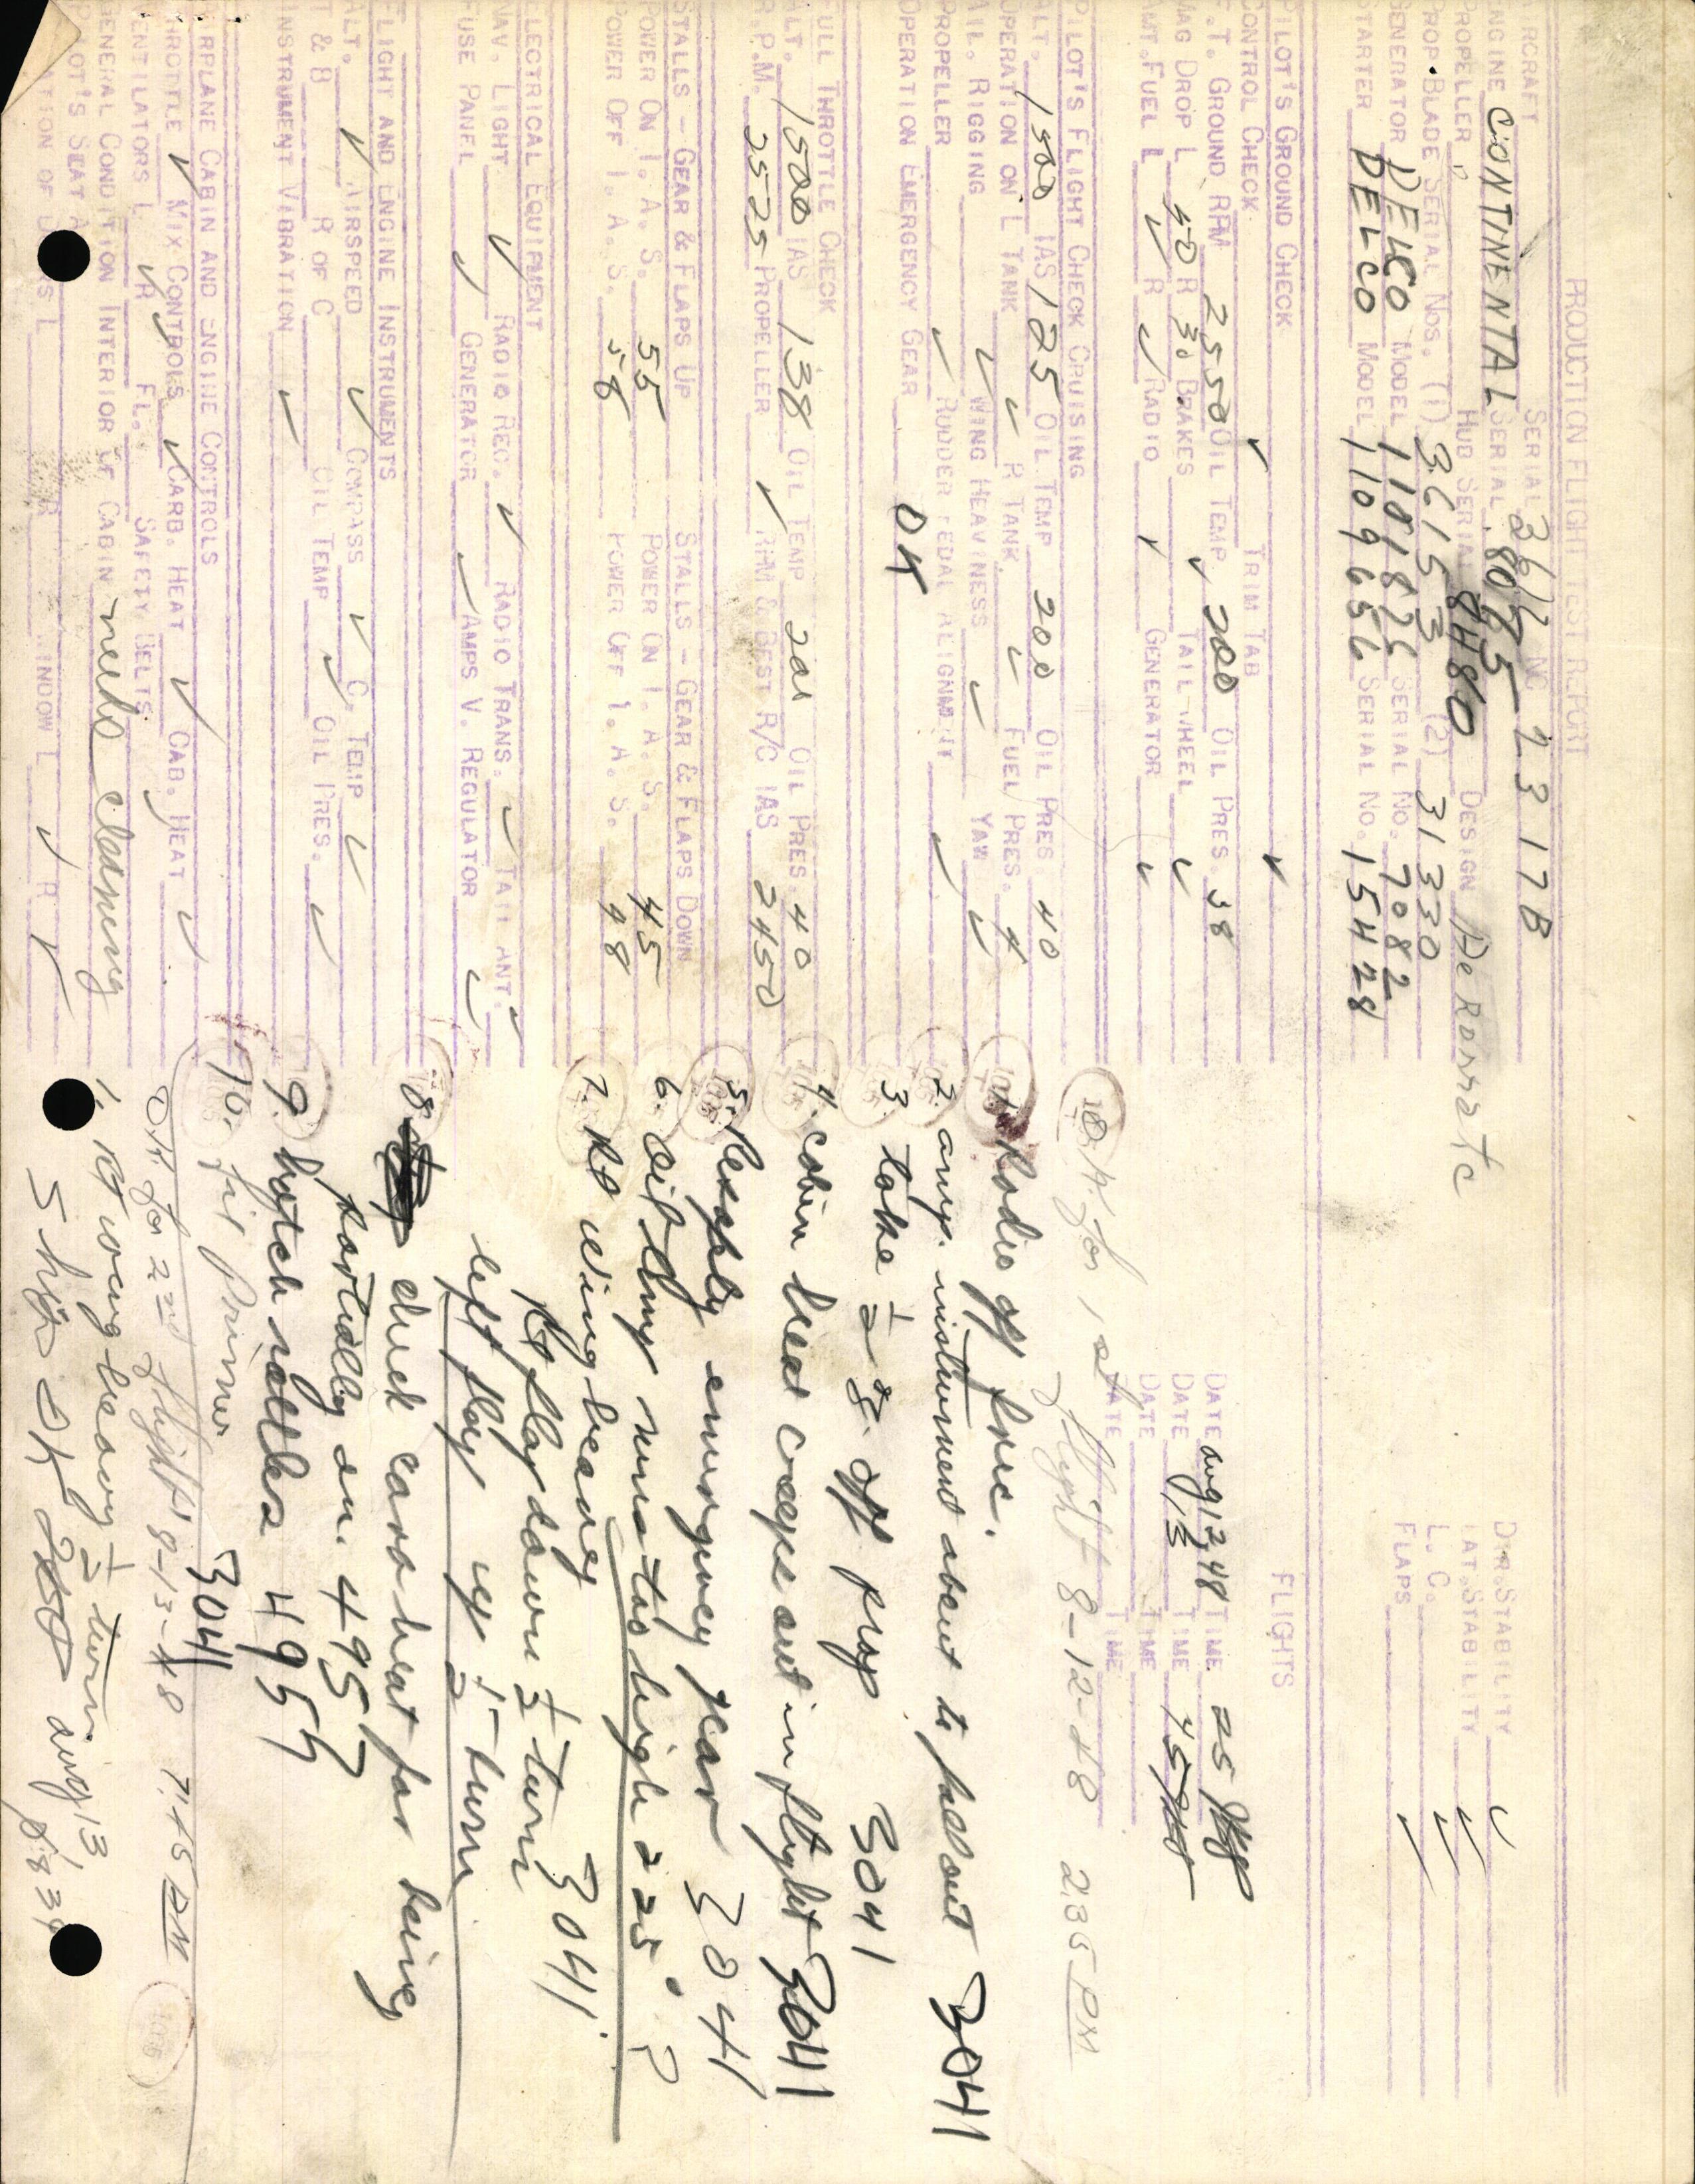 PRODUCTION FLIGHT TEST REPORT
AIRCRAFT SERIAL NC 2317B
ENGINE CONTINENTAL SERIAL
PROPELLER " HUB SERIAL 8480 DESIGN
PROP. BLADE SERIAL NOS. (1) 36153 (2) 31330
GENERATOR DELCO MODEL 1181825 SERIAL NO. 7082
STARTER DELCO MODEL 1109656 SERIAL NO. 15428
DIR. STABILITY ✓
LAT. STABILITY ✓
L. C. ✓
FLAPS ✓
PILOT'S GROUND CHECK
CONTROL CHECK ✓ TRIM TAB ✓
F. T. GROUND RPM 2550 OIL TEMP 200 OIL PRES 38
MAG DROP L 50 R 30 BRAKES ✓ TAIL WHEEL ✓
AMT. FUEL L ✓ R ✓ RADIO ✓ GENERATOR ✓
FLIGHTS
DATE Aug 12, 48 TIME 25
DATE 13 TIME 45
DATE TIME
DATE TIME
OK for 1st flight 8-12-48 2:35 PM
PILOT'S FLIGHT CHECK CRUISING
ALT. 1500 IAS 125 OIL TEMP 200 OIL PRES 40
OPERATION ON L TANK ✓ R TANK ✓ FUEL PRES. 4
AIL. RIGGING ✓ WING HEAVINESS ✓ YAW ✓
PROPELLER ✓ RUDDER PEDAL ALIGNMENT ✓
OPERATION EMERGENCY GEAR OK
FULL THROTTLE CHECK
ALT. 1500 IAS 138 OIL TEMP 201 OIL PRES. 40
R.P.M. 2525 PROPELLER ✓ RPM & BEST R/C IAS 2450
STALLS - GEAR & FLAPS UP STALLS - GEAR & FLAPS DOWN
POWER ON I. A. S. 55 POWER ON I. A. S. 45
POWER OFF I. A. S. 58 POWER OFF I. A. S. 48
ELECTRICAL EQUIPMENT
NAV. LIGHT ✓ RADIO REC. ✓ RADIO TRANS. ✓ TAIL ANT. ✓
FUSE PANEL ✓ GENERATOR ✓ AMPS V. REGULATOR ✓
FLIGHT AND ENGINE INSTRUMENTS
ALT. ✓ AIRSPEED ✓ COMPASS ✓ C. TEMP ✓
T & B R OF C OIL TEMP ✓ OIL PRES. ✓
INSTRUMENT VIBRATION ✓
AIRPLANE CABIN AND ENGINE CONTROLS
THROTTLE ✓ MIX CONTROLS ✓ CARB. HEAT ✓ CAB. HEAT ✓
VENTILATORS L ✓ R ✓ FL. SAFETY BELTS ✓
GENERAL CONDITION INTERIOR OF CABIN needs cleaning
PILOT'S SEAT
WINDOW L ✓ R ✓
1. Radio off freq.
2. amp. instrument about to fall out 3041
3. take ½ 8. off prop 3041
4. cabin heat creeps out in flight 3041
5. Resafety emergency gear 3041
6. Oil temp runs too high 225° ?
7. Rt wing heavy
Rt flap down ½ turn 3041.
left flap up ½ turn
8. check carb heat for being
partially on. 4957
9. hatch rattles 4957
10. fit primer 3041
OK for 2nd flight 8-13-48 7:45 AM
1. Rt wing heavy ½ turn
Aug 13